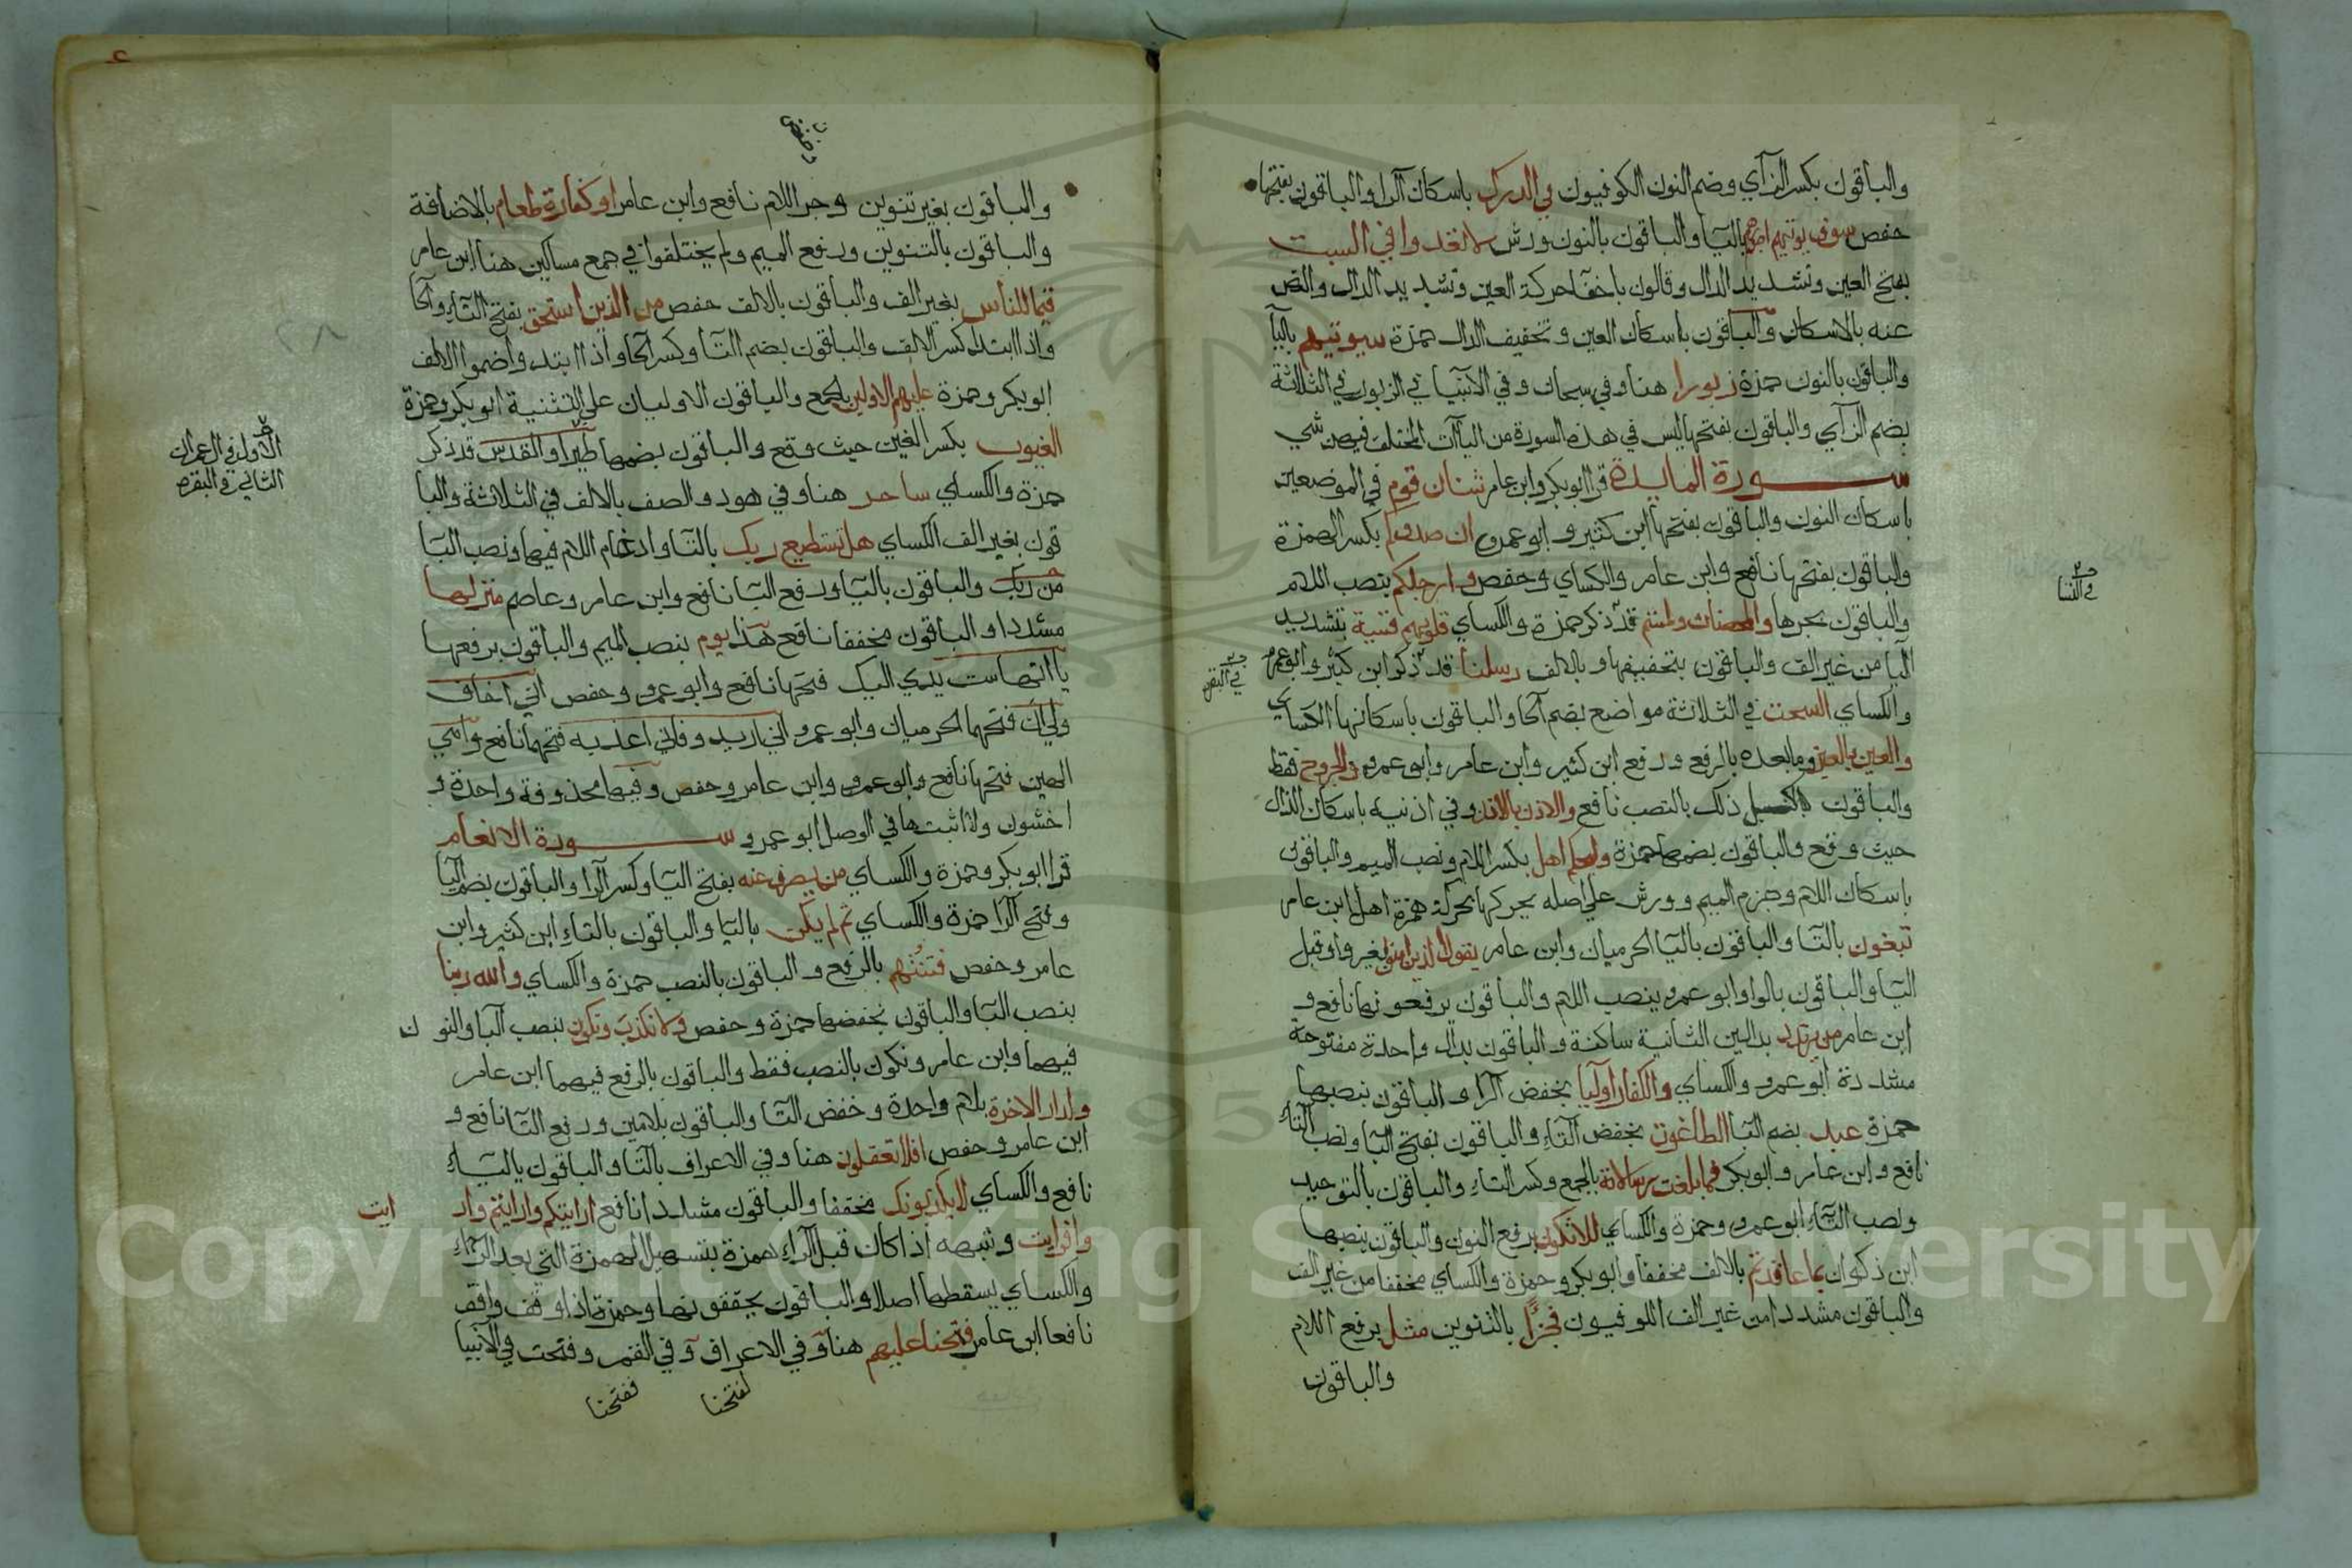 والباقون بكسر الزآي وضم النون الكوفيون في الدرك باسكان الرا والباقون بفتحها
حفص سوف يوتيهم اجورهم باليا والباقون بالنون ورش لا تعدوا في السبت
بفتح العين وتشديد الدال وقالون باخفآ حركة العين وتشديد الدال والنص
عنه بالاسكان والباقون باسكان العين وتخفيف الدال حمزة سيوتيهم باليآ
والباقون بالنون حمزة زبورا هنا وفي سبحان وفي الانبيا في الزبور في الثلاثة
بضم الزآي والباقون بفتحها ليس في هذه السورة من اليآات المختلف فيهن شي
سورة المايدة قرا ابوبكر وابن عامر شنان قوم في الموضعين
باسكان النون والباقون بفتحها ابن كثير وابو عمرو ان صدوكم بكسر الهمزة
والباقون بفتحها نافع وابن عامر والكساي وحفص وارجلكم بنصب اللام
والباقون بجرها والمحصنات ولمستم قد ذكر حمزة والكساي قلوبهم قسية بتشديد
اليا من غير الف والباقون بتخفيفها وبالالف رسلنا قد ذكر ابن كثير وابو عمرو
والكساي السحت في الثلاثة مواضع بضم الحا والباقون باسكانها الكساي
والعين بالعين وما بعده بالرفع ورفع ابن كثير وابن عامر وابو عمرو والجروح فقط
والباقون ذلك بالنصب نافع والاذن بالاذن وفي اذنيه باسكان الذال
حيث وقع والباقون بضمها حمزة وليحكم اهل بكسر اللام ونصب الميم والباقون
باسكان اللام وجزم الميم وورش على اصله يحركها بحركة همزة اهل ابن عامر
تبغون بالتا والباقون باليا الحرميان وابن عامر يقول الذين امنوا بغير واو قبل
اليا والباقون بالواو ابو عمرو ينصب اللام والباقون يرفعونها نافع و
ابن عامر من يرتدد بدالين الثانية ساكنة والباقون بدال واحدة مفتوحة
مشددة ابو عمرو والكساي والكفار اوليا بخفض الرا والباقون بنصبها
حمزة عبد بضم البا الطاغوت بخفض التاء والباقون بفتح البا ونصب التاء
نافع وابن عامر وابوبكر فما بلغت رسالاته بالجمع وكسر التاء والباقون بالتوحيد
ونصب التاء ابو عمرو وحمزة والكساي الا تكون برفع النون والباقون بنصبها
ابن ذكوان بما عاقدتم بالالف مخففا وابوبكر وحمزة والكساي مخففا من غير الف
والباقون مشددا من غير الف الكوفيون فجزاء بالتنوين مثل برفع اللام
والباقون
في النسا
في البقره
والباقون بغير تنوين وجر اللام نافع وابن عامر او كفارة طعام بالاضافة
والباقون بالتنوين ورفع الميم ولم يختلفوا في جمع مساكين هنا ابن عامر
قيما للناس بغير الف والباقون بالالف حفص من الذين استحق بفتح التاء والحا
واذا ابتدا كسر الالف والباقون بضم التا وكسر الحا واذا ابتدوا ضموا الالف
ابوبكر وحمزة عليهم الاولين بالجمع والباقون الاوليان على التثنية ابوبكر وحمزة
الغيوب بكسر الغين حيث وقع والباقون بضمها طيرا والقدس قد ذكر
حمزة والكساي ساحر هنا وفي هود والصف بالالف في الثلاثة والبا
قون بغير الف الكساي هل تستطيع ربك بالتا وادغام اللام فيها ونصب البا
من ربك والباقون باليا ورفع البا نافع وابن عامر وعاصم منزلها
مشددا والباقون مخففا نافع هذا يوم بنصب الميم والباقون برفعها
يااتها ست يدي اليك فتحها نافع وابو عمرو وحفص اني اخاف
ولي ان فتحهما الحرميان وابو عمرو اني اريد وفاني اعذبه فتحهما نافع وامي
الهين فتحها نافع وابو عمرو وابن عامر وحفص وفيها محذوفة واحدة و
اخشون ولا اثبتها في الوصل ابو عمرو سورة الانعام
قرا ابوبكر وحمزة والكساي من يصرف عنه بفتح اليا وكسر الرا والباقون بضم اليا
وفتح الرا حمزة والكساي ثم لم يكن باليا والباقون بالتاء ابن كثير وابن
عامر وحفص فتنتهم بالرفع والباقون بالنصب حمزة والكساي والله ربنا
بنصب البا والباقون بخفضها حمزة وحفص ولا نكذب ونكون بنصب البا والنون
فيهما وابن عامر ونكون بالنصب فقط والباقون بالرفع فيهما ابن عامر
ولدار الاخرة بلام واحدة وخفض التا والباقون بلامين ورفع التا نافع و
ابن عامر وحفص افلا تعقلون هنا وفي الاعراف بالتا والباقون باليـاء
نافع والكساي لا يكذبونك مخففا والباقون مشددا نافع ارايتكم وارايتم وار ايت
وافرايت وشبهه اذا كان قبل الراء همزة بتسهيل الهمزة التي بعد الراء
والكساي يسقطها اصلا والباقون يحققونها وحمزة اذا وقف وافق
نافعا ابن عامر فتحنا عليهم هنا وفي الاعراف وفي القمر وفتحت في الانبيا
لفتحنا
ففتحنا
الاول في ال عمران
الثاني في البقره